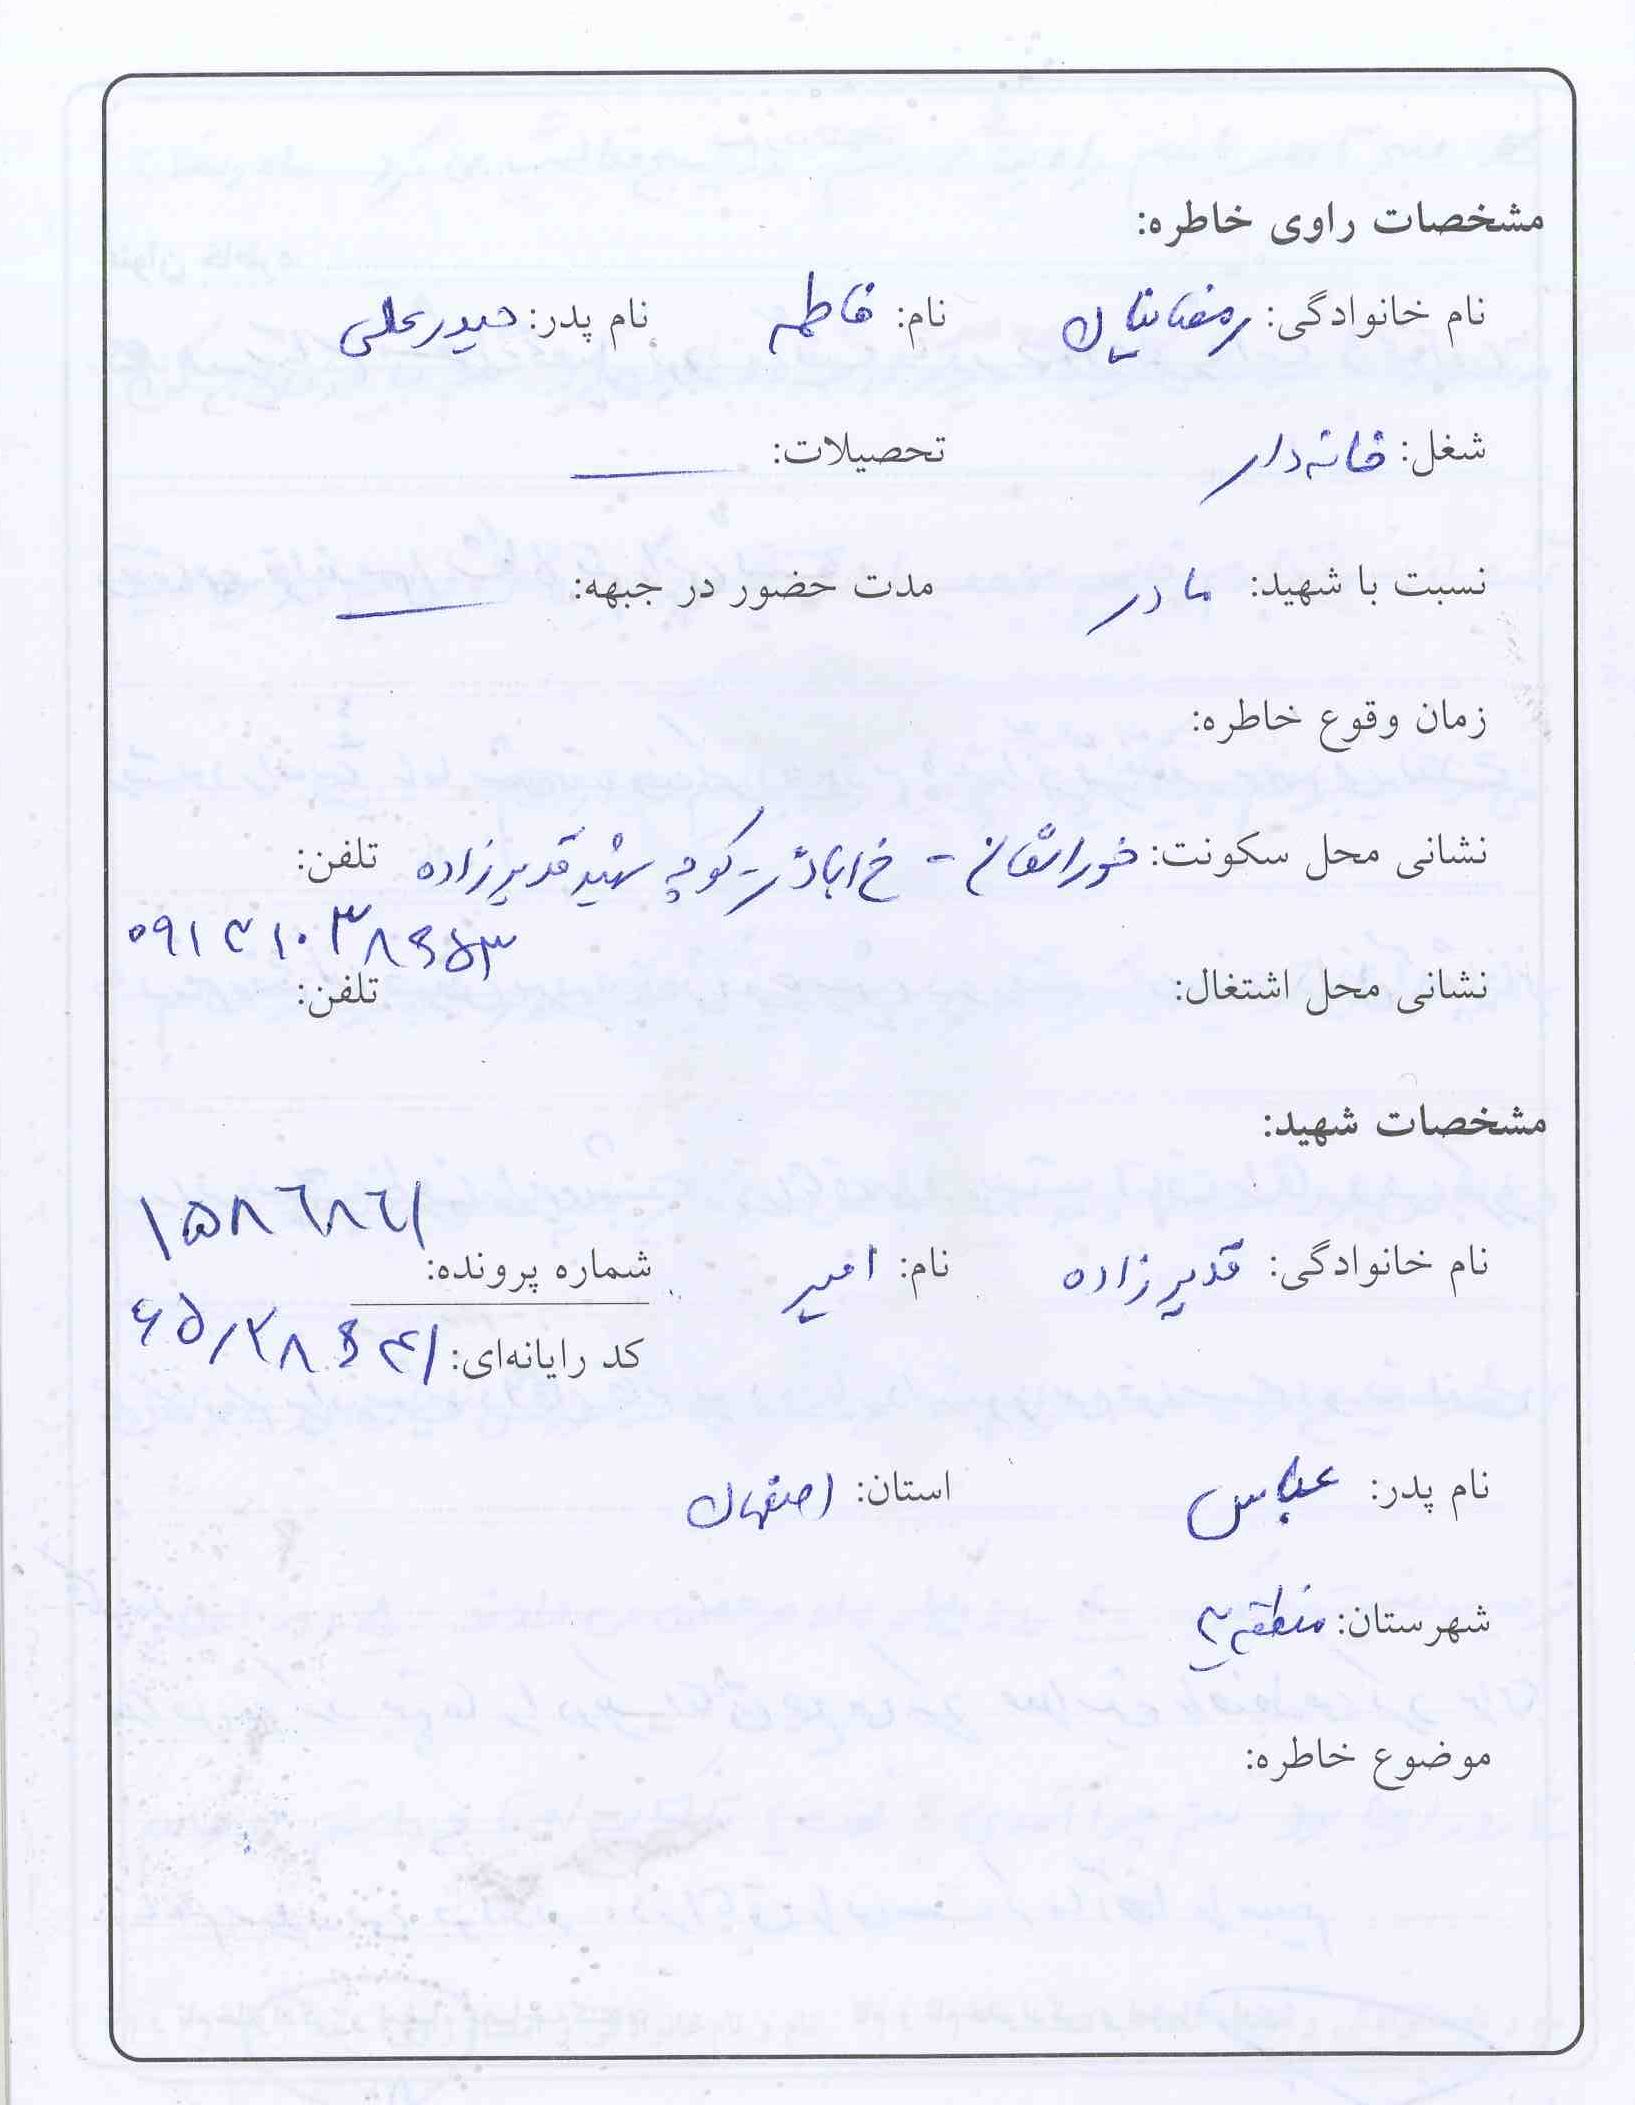 مشخصات راوی خاطره:
نام خانوادگی: رمضانیان نام: فاطمه نام پدر: حیدرعلی
شغل: خانه‌دار تحصیلات: ــــــ
نسبت با شهید: مادر مدت حضور در جبهه: ــــــ
زمان وقوع خاطره:
نشانی محل سکونت: خوراسگان - خ اباذر - کوچه شهید قدیرزاده تلفن:
نشانی محل اشتغال: تلفن:
مشخصات شهید:
۱۵۸۶۸۶۱
نام خانوادگی: قدیرزاده نام: امیر شماره پرونده:
کد رایانه‌ای:
نام پدر: عباس استان: اصفهان
شهرستان: منطقه ۳
موضوع خاطره: